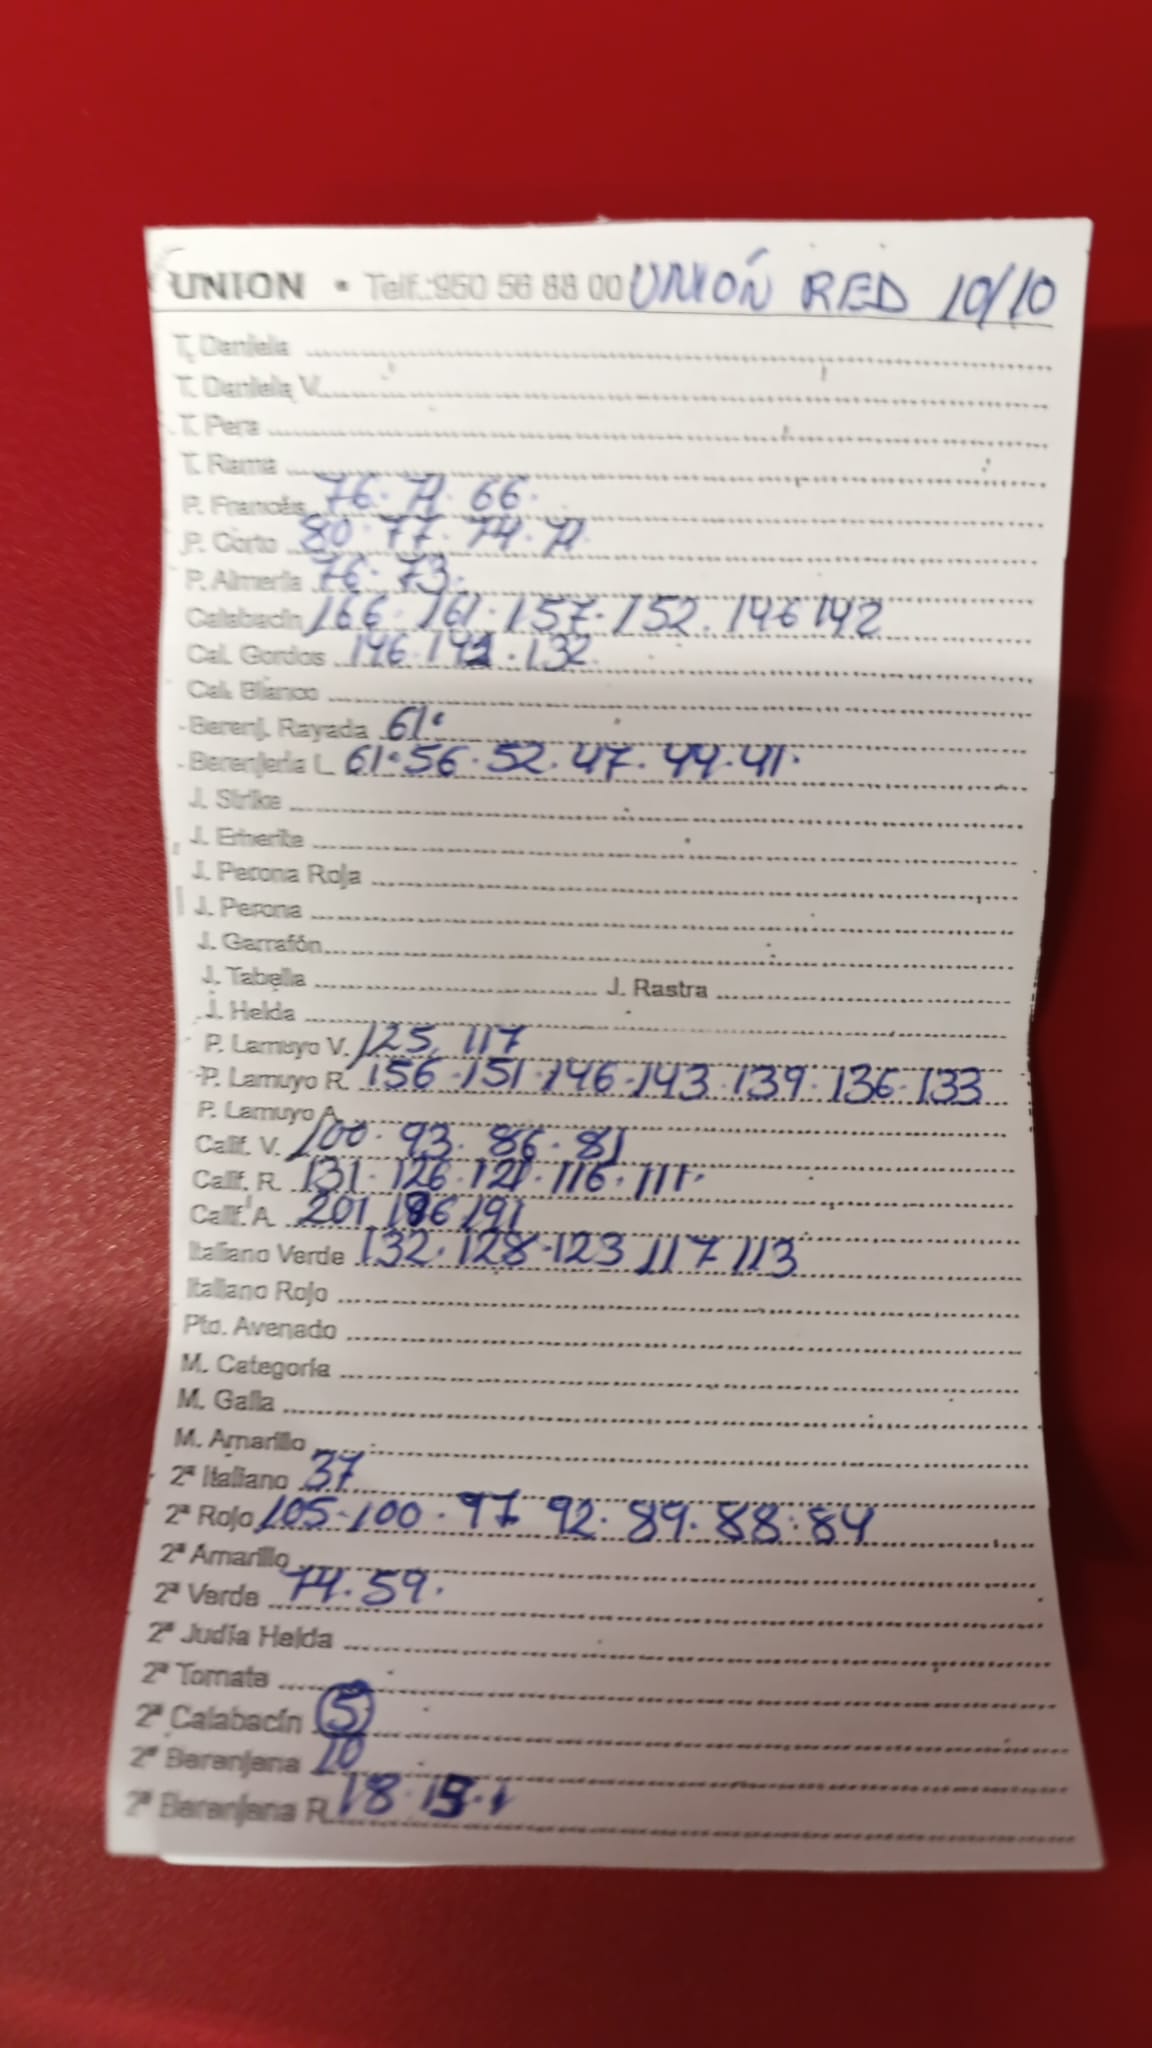 UNION • Telf.:950 56 88 00 UNIÓN RED 10/10
T. Daniela
T. Daniela V.
T. Pera
T. Rama
P. Francés 76. 71. 66.
P. Corto 80. 77. 74. 71.
P. Almería 76. 73.
Calabacín 166. 161. 157. 152. 146 142
Cal. Gordos 146. 142. 132.
Cal. Blanco
Berenj. Rayada 61.
Berenjena L. 61. 56. 52. 47. 44. 41.
J. Strike
J. Emerite
J. Perona Roja
J. Perona
J. Garrafón
J. Tabella J. Rastra
J. Helda
P. Lamuyo V. 125. 117
P. Lamuyo R. 156. 151. 146. 143. 139. 136. 133
P. Lamuyo A.
Calif. V. 100. 93. 86. 81
Calif. R. 131. 126. 121. 116. 111.
Calif. A. 201 191
Italiano Verde 132. 128. 123 117 113
Italiano Rojo
Pto. Avenado
M. Categoría
M. Galia
M. Amarillo
2ª Italiano 37
2ª Rojo 105. 100. 97 92. 89. 88. 84
2ª Amarillo
2ª Verde 74. 59.
2ª Judía Helda
2ª Tomate
2ª Calabacín 5
2ª Berenjena 20
2ª Berenjena R. 18.